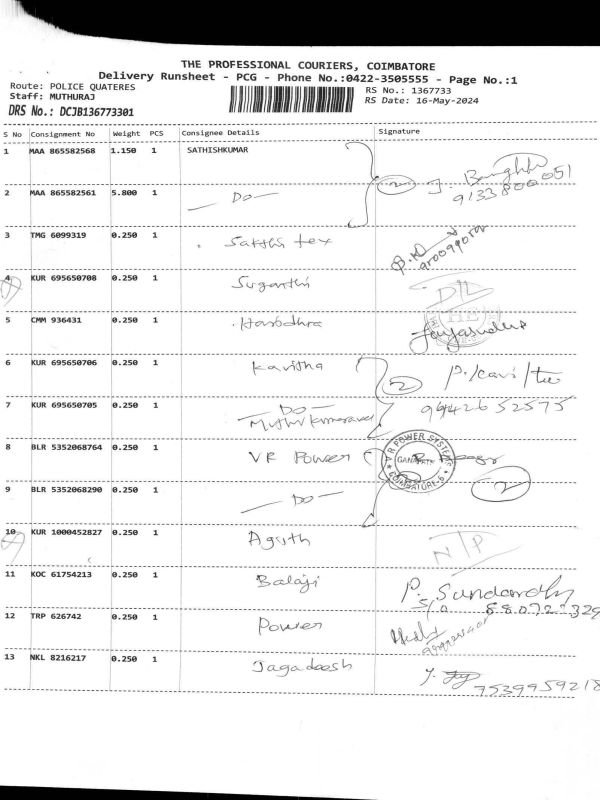 THE PROFESSIONAL COURIERS, COIMBATORE
Delivery Runsheet - PCG - Phone No.:0422-3505555 - Page No.:1
Route: POLICE QUATERES
Staff: MUTHURAJ
DRS No.: DCJB136773301
RS No.: 1367733
RS Date: 16-May-2024
S No Consignment No Weight PCS Consignee Details Signature
1 MAA 865582568 1.150 1 SATHISHKUMAR
2 MAA 865582561 5.800 1 — Do —
2
9133800051
3 TMG 6099319 0.250 1 Sakthi tex
4 KUR 695650708 0.250 1 Suganthi D/L
5 CMM 936431 0.250 1
6 KUR 695650706 0.250 1 Kavitha
2
7 KUR 695650705 0.250 1 — DO —
9942652575
8 BLR 5352068764 0.250 1 VR Power
VR POWER SYSTEMS
COIMBATORE-6
9 BLR 5352068290 0.250 1 — DO —
2
10 KUR 1000452827 0.250 1 N/P
11 KOC 61754213 0.250 1 Balaji
12 TRP 626742 0.250 1 Power
13 NKL 8216217 0.250 1 Jagadeesh
7539959218